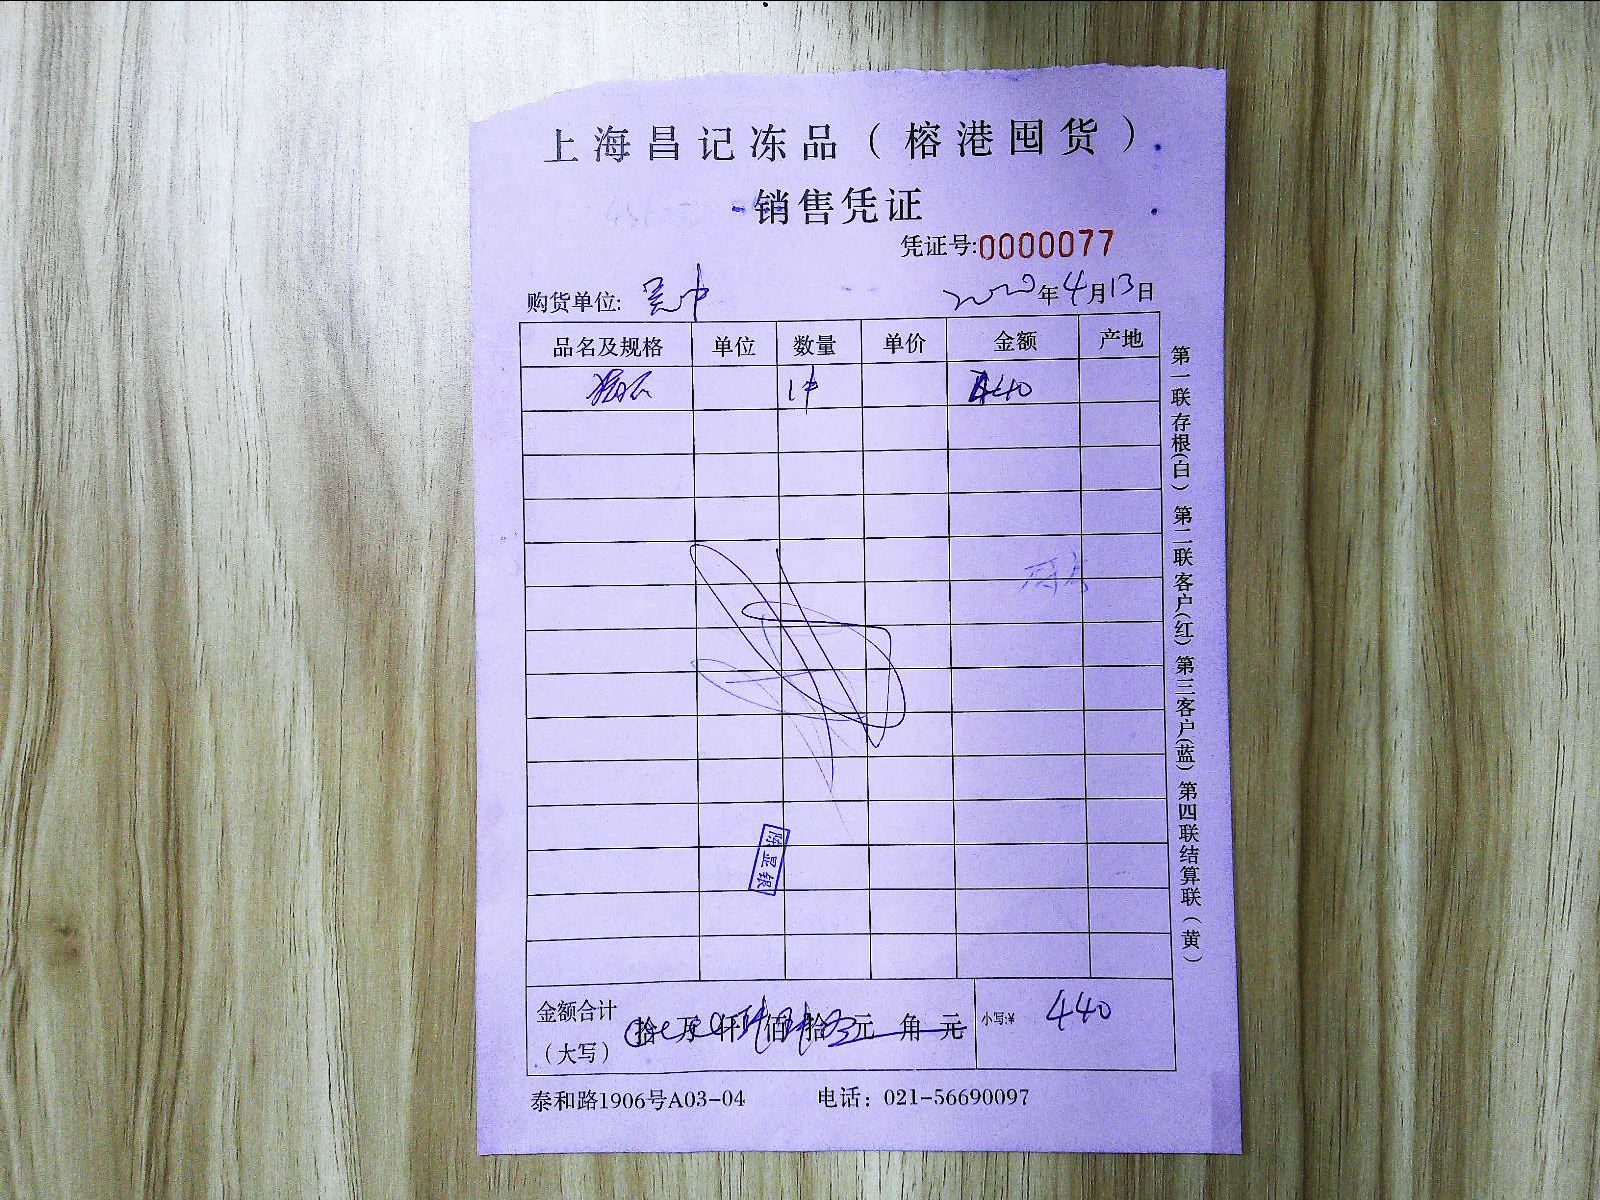 上海昌记冻品（榕港囤货）
销售凭证
凭证号:0000077
购货单位: 2020年4月13日
品名及规格 单位 数量 单价 金额 产地
1件 440
陈显银
金额合计（大写） 拾 万 仟 佰 拾 元 角 元 小写:¥ 440
泰和路1906号A03-04 电话：021-56690097
第一联存根(白) 第二联客户(红) 第三客户(蓝) 第四联结算联(黄)